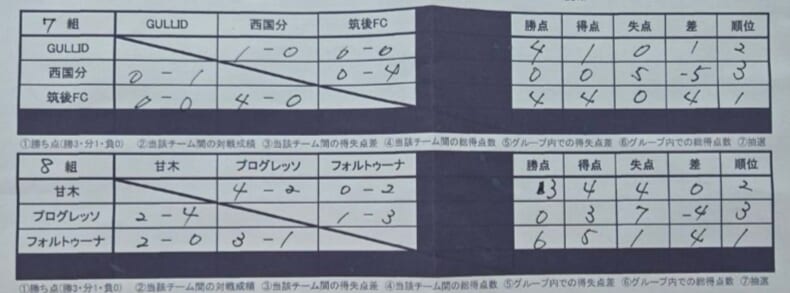 7 組 GULLID 西国分 筑後FC 勝点 得点 失点 差 順位
GULLID 1-0 0-0 4 1 0 1 2
西国分 0-1 0-4 0 0 5 -5 3
筑後FC 0-0 4-0 4 4 0 4 1
①勝ち点(勝3・分1・負0) ②当該チーム間の対戦成績 ③当該チーム間の得失点差 ④当該チーム間の総得点数 ⑤グループ内での得失点差 ⑥グループ内での総得点数 ⑦抽選
8 組 甘木 プログレッソ フォルトゥーナ 勝点 得点 失点 差 順位
甘木 4-2 0-2 3 4 4 0 2
プログレッソ 2-4 1-3 0 3 7 -4 3
フォルトゥーナ 2-0 3-1 6 5 1 4 1
①勝ち点(勝3・分1・負0) ②当該チーム間の対戦成績 ③当該チーム間の得失点差 ④当該チーム間の総得点数 ⑤グループ内での得失点差 ⑥グループ内での総得点数 ⑦抽選